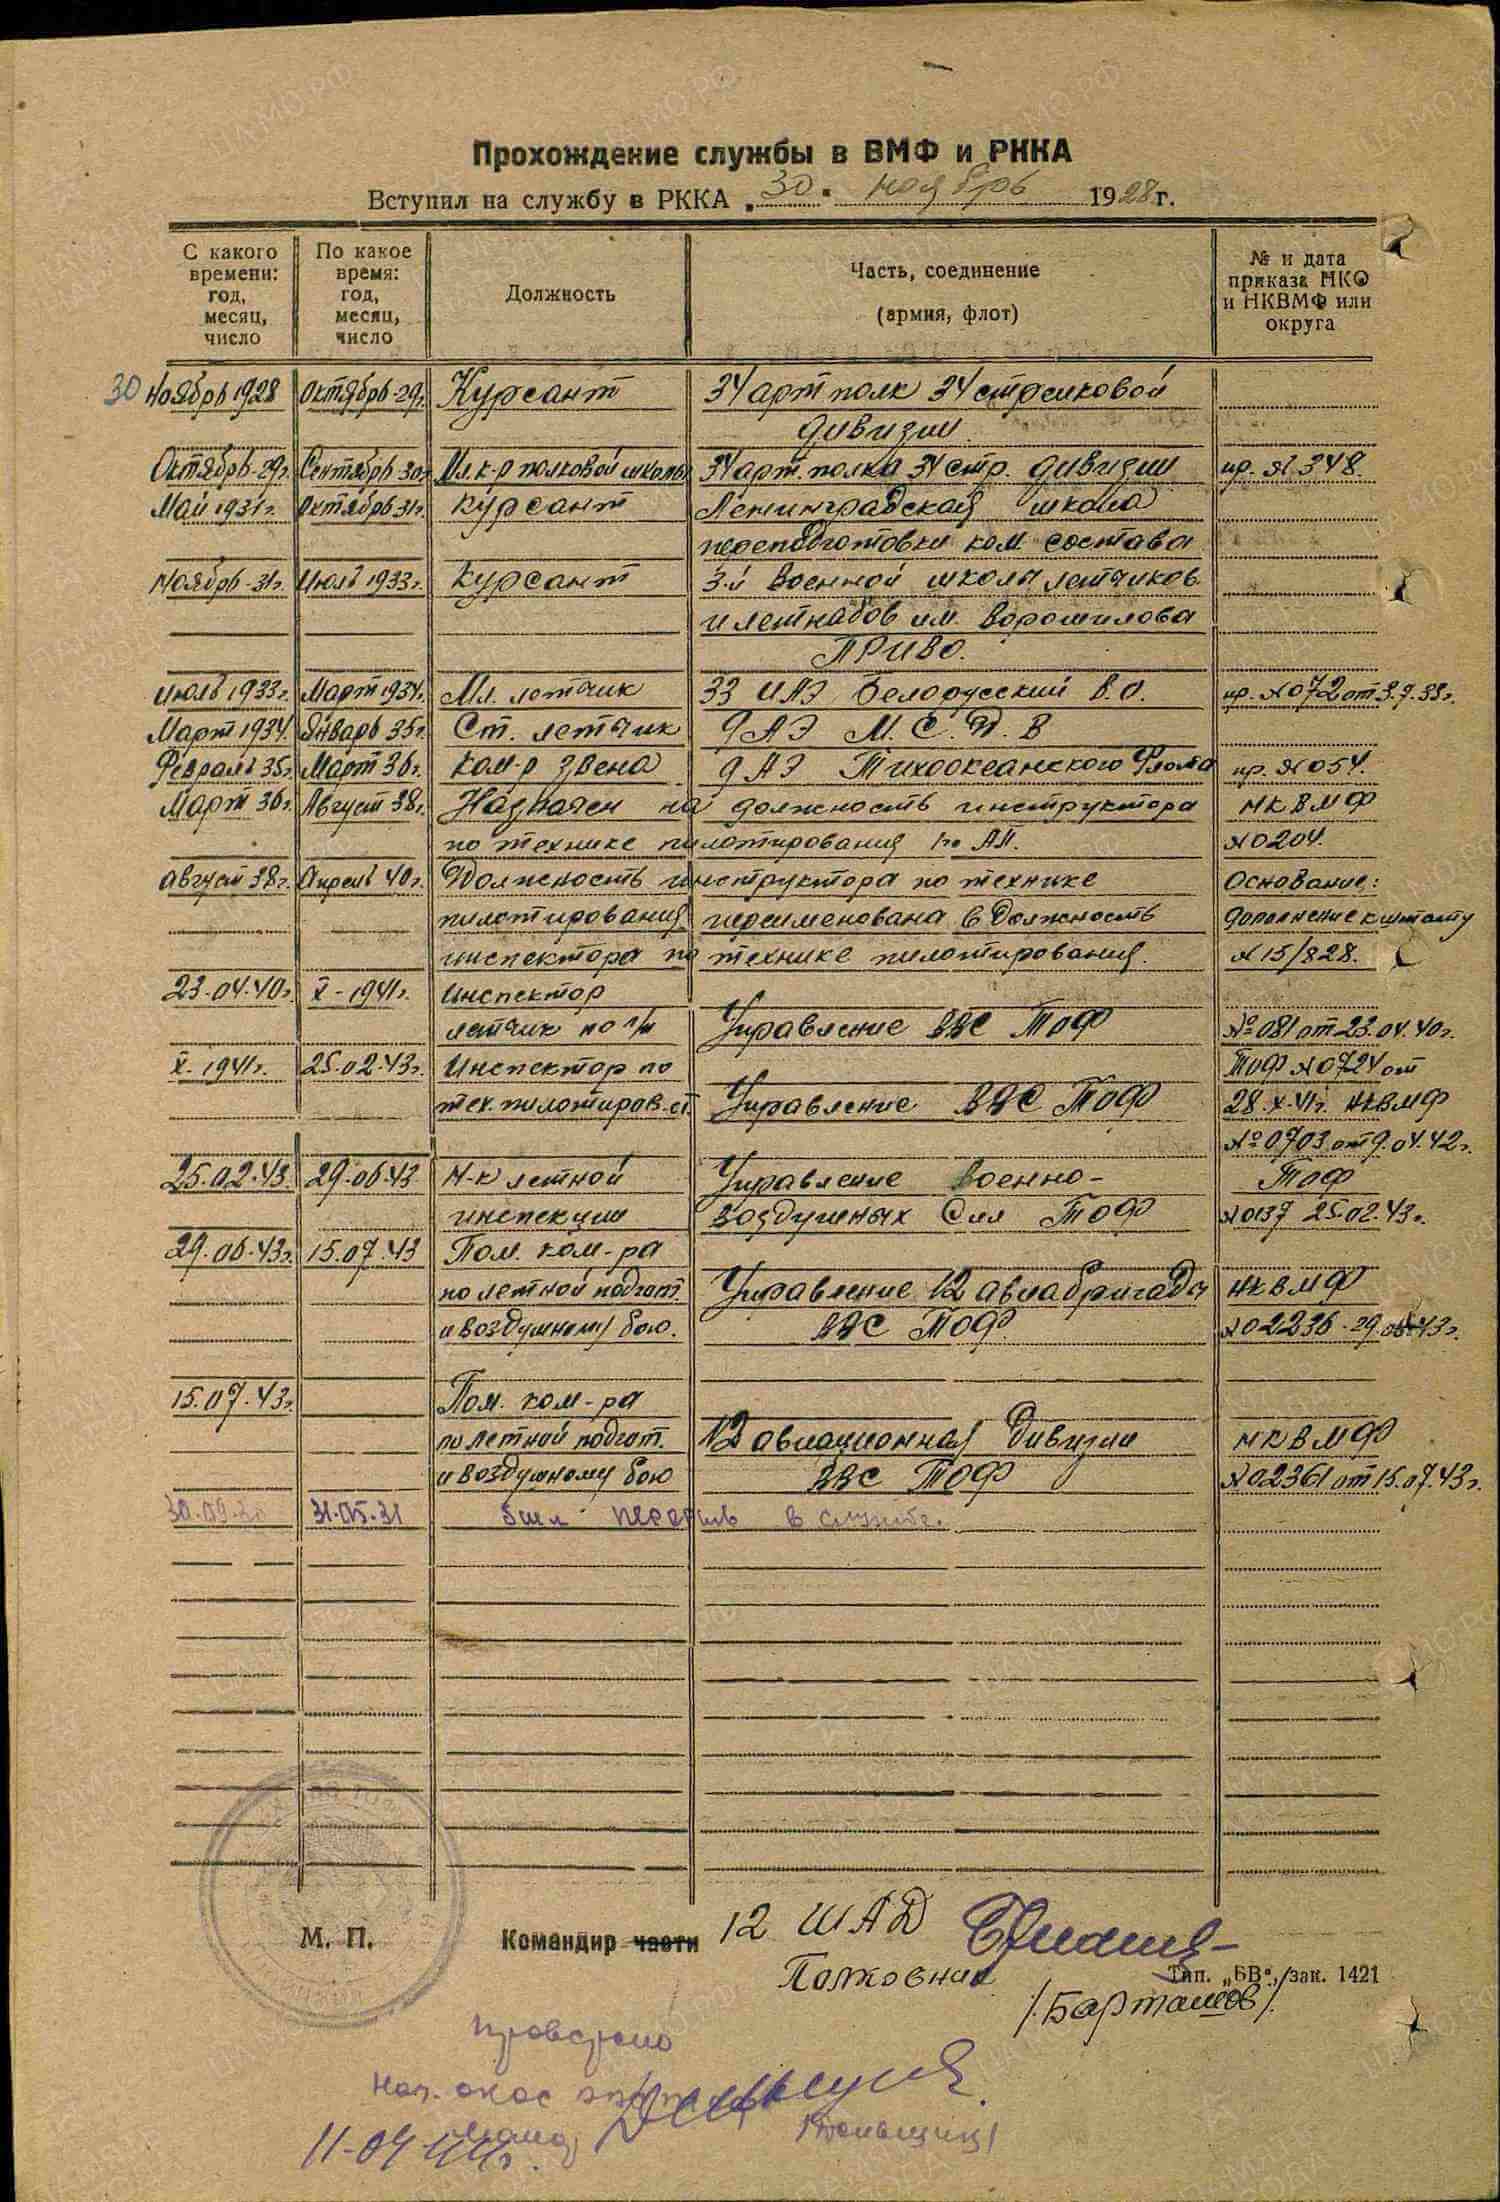 Прохождение службы в ВМФ и РККА
Вступил на службу в РККА „30“ ноябрь 1928 г.
С какого времени: год, месяц, число
По какое время: год, месяц, число
Должность
Часть, соединение (армия, флот)
№ и дата приказа НКО и НКВМФ или округа
30 Ноябрь 1928 Октябрь-29г. Курсант 34 арт полк 34 стрелковой
дивизии
Октябрь-29г. Сентябрь 30г. Мл. к-р полковой школы 34 арт. полка 34 стр. дивизии пр. № 348.
Май 1931г. Октябрь 31г. курсант Ленинградская школа
переподготовки ком. состава
Ноябрь-31г. Июль 1933г. курсант 3-й военной школы летчиков
и летнабов им. Ворошилова
ПРИВО.
Июль 1933г. Март 1934г. Мл. летчик 33 ИАЭ Белорусский В.О. пр. № 072 от 3.7.33г.
Март 1934. Январь 35г. Ст. летчик 9 АЭ М.С.Д.В
Февраль 35г. Март 36г. ком-р звена 9 АЭ Тихоокеанского Флота пр. № 054.
Март 36г. Август 38г. Назначен на должность инструктора НКВМФ
по технике пилотирования по АП. № 0204.
август 38г. Апрель 40г. Должность инструктора по технике Основание:
пилотирования переименована в должность дополнение к штату
инспектора по технике пилотирования. № 15/828.
23.04.40г. X-1941г. Инспектор
летчик по т/п Управление ВВС ТОФ № 081 от 23.04.40г.
X-1941г. 25.02.43г. Инспектор по ТОФ № 0724 от
тех. пилотиров. Управление ВВС ТОФ 28.X.41г. НКВМФ
№ 0703 от 9.04.42г.
25.02.43. 29.06.43 Н-к летной Управление Военно- ТОФ
инспекции воздушных Сил ТОФ № 0137 25.02.43г.
29.06.43г. 15.07.43 Пом. ком-ра
по летной подгот. Управление 12 авиабригады НКВМФ
и воздушному бою. ВВС ТОФ. № 02236-29.06.43г.
15.07.43г. Пом. ком-ра
по летной подгот. 12 авиационная дивизии НКВМФ
и воздушному бою ВВС ТОФ № 02361 от 15.07.43г.
30.09.30 31.05.31 был перерыв в службе.
М. П. Командир части 12 ШАД
Полковник
/Барташов/
Тип. „БВ“, зак. 1421
Проверено
11-04-44г.